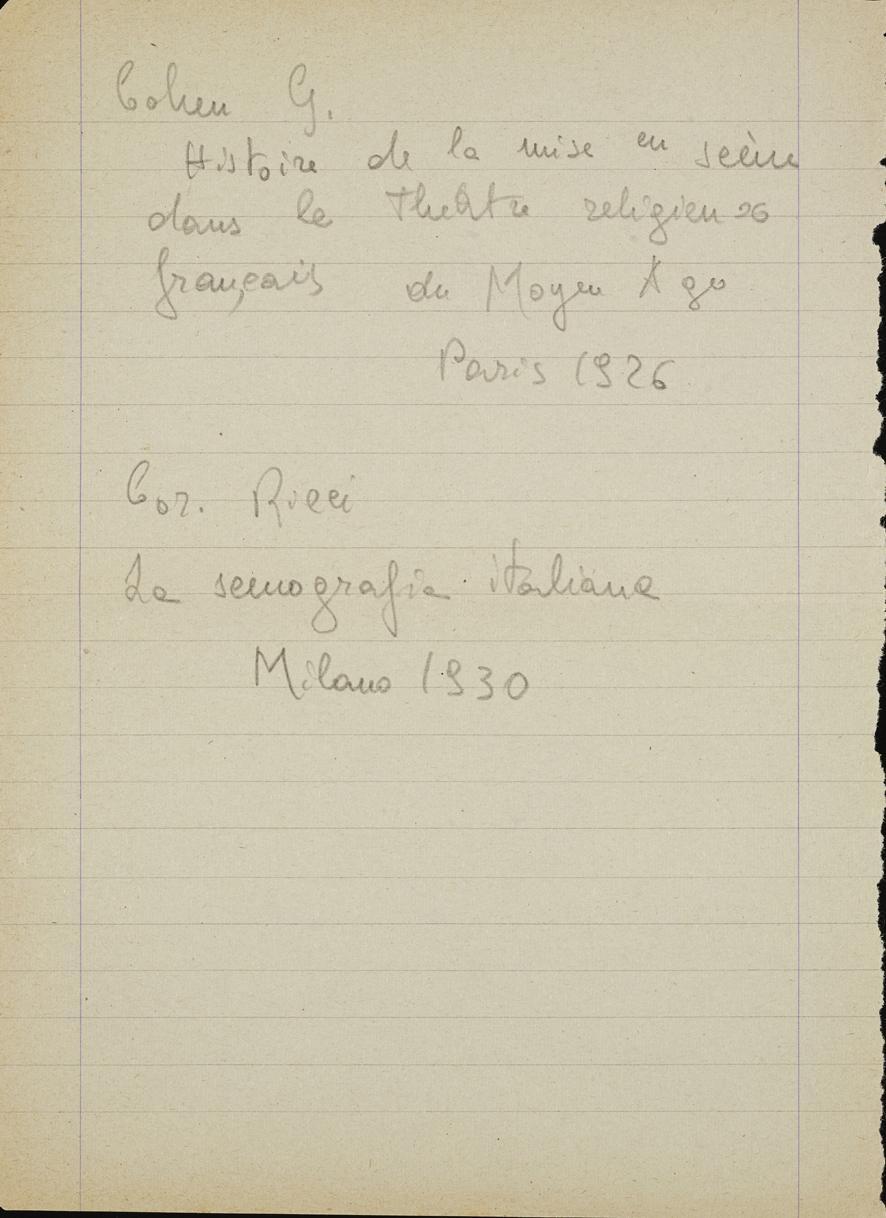 Cohen G.
Histoire de la mise en scène
dans le Théâtre religieux
français du Moyen Age
Paris 1926
Cor. Ricci
La scenografia italiana
Milano 1930